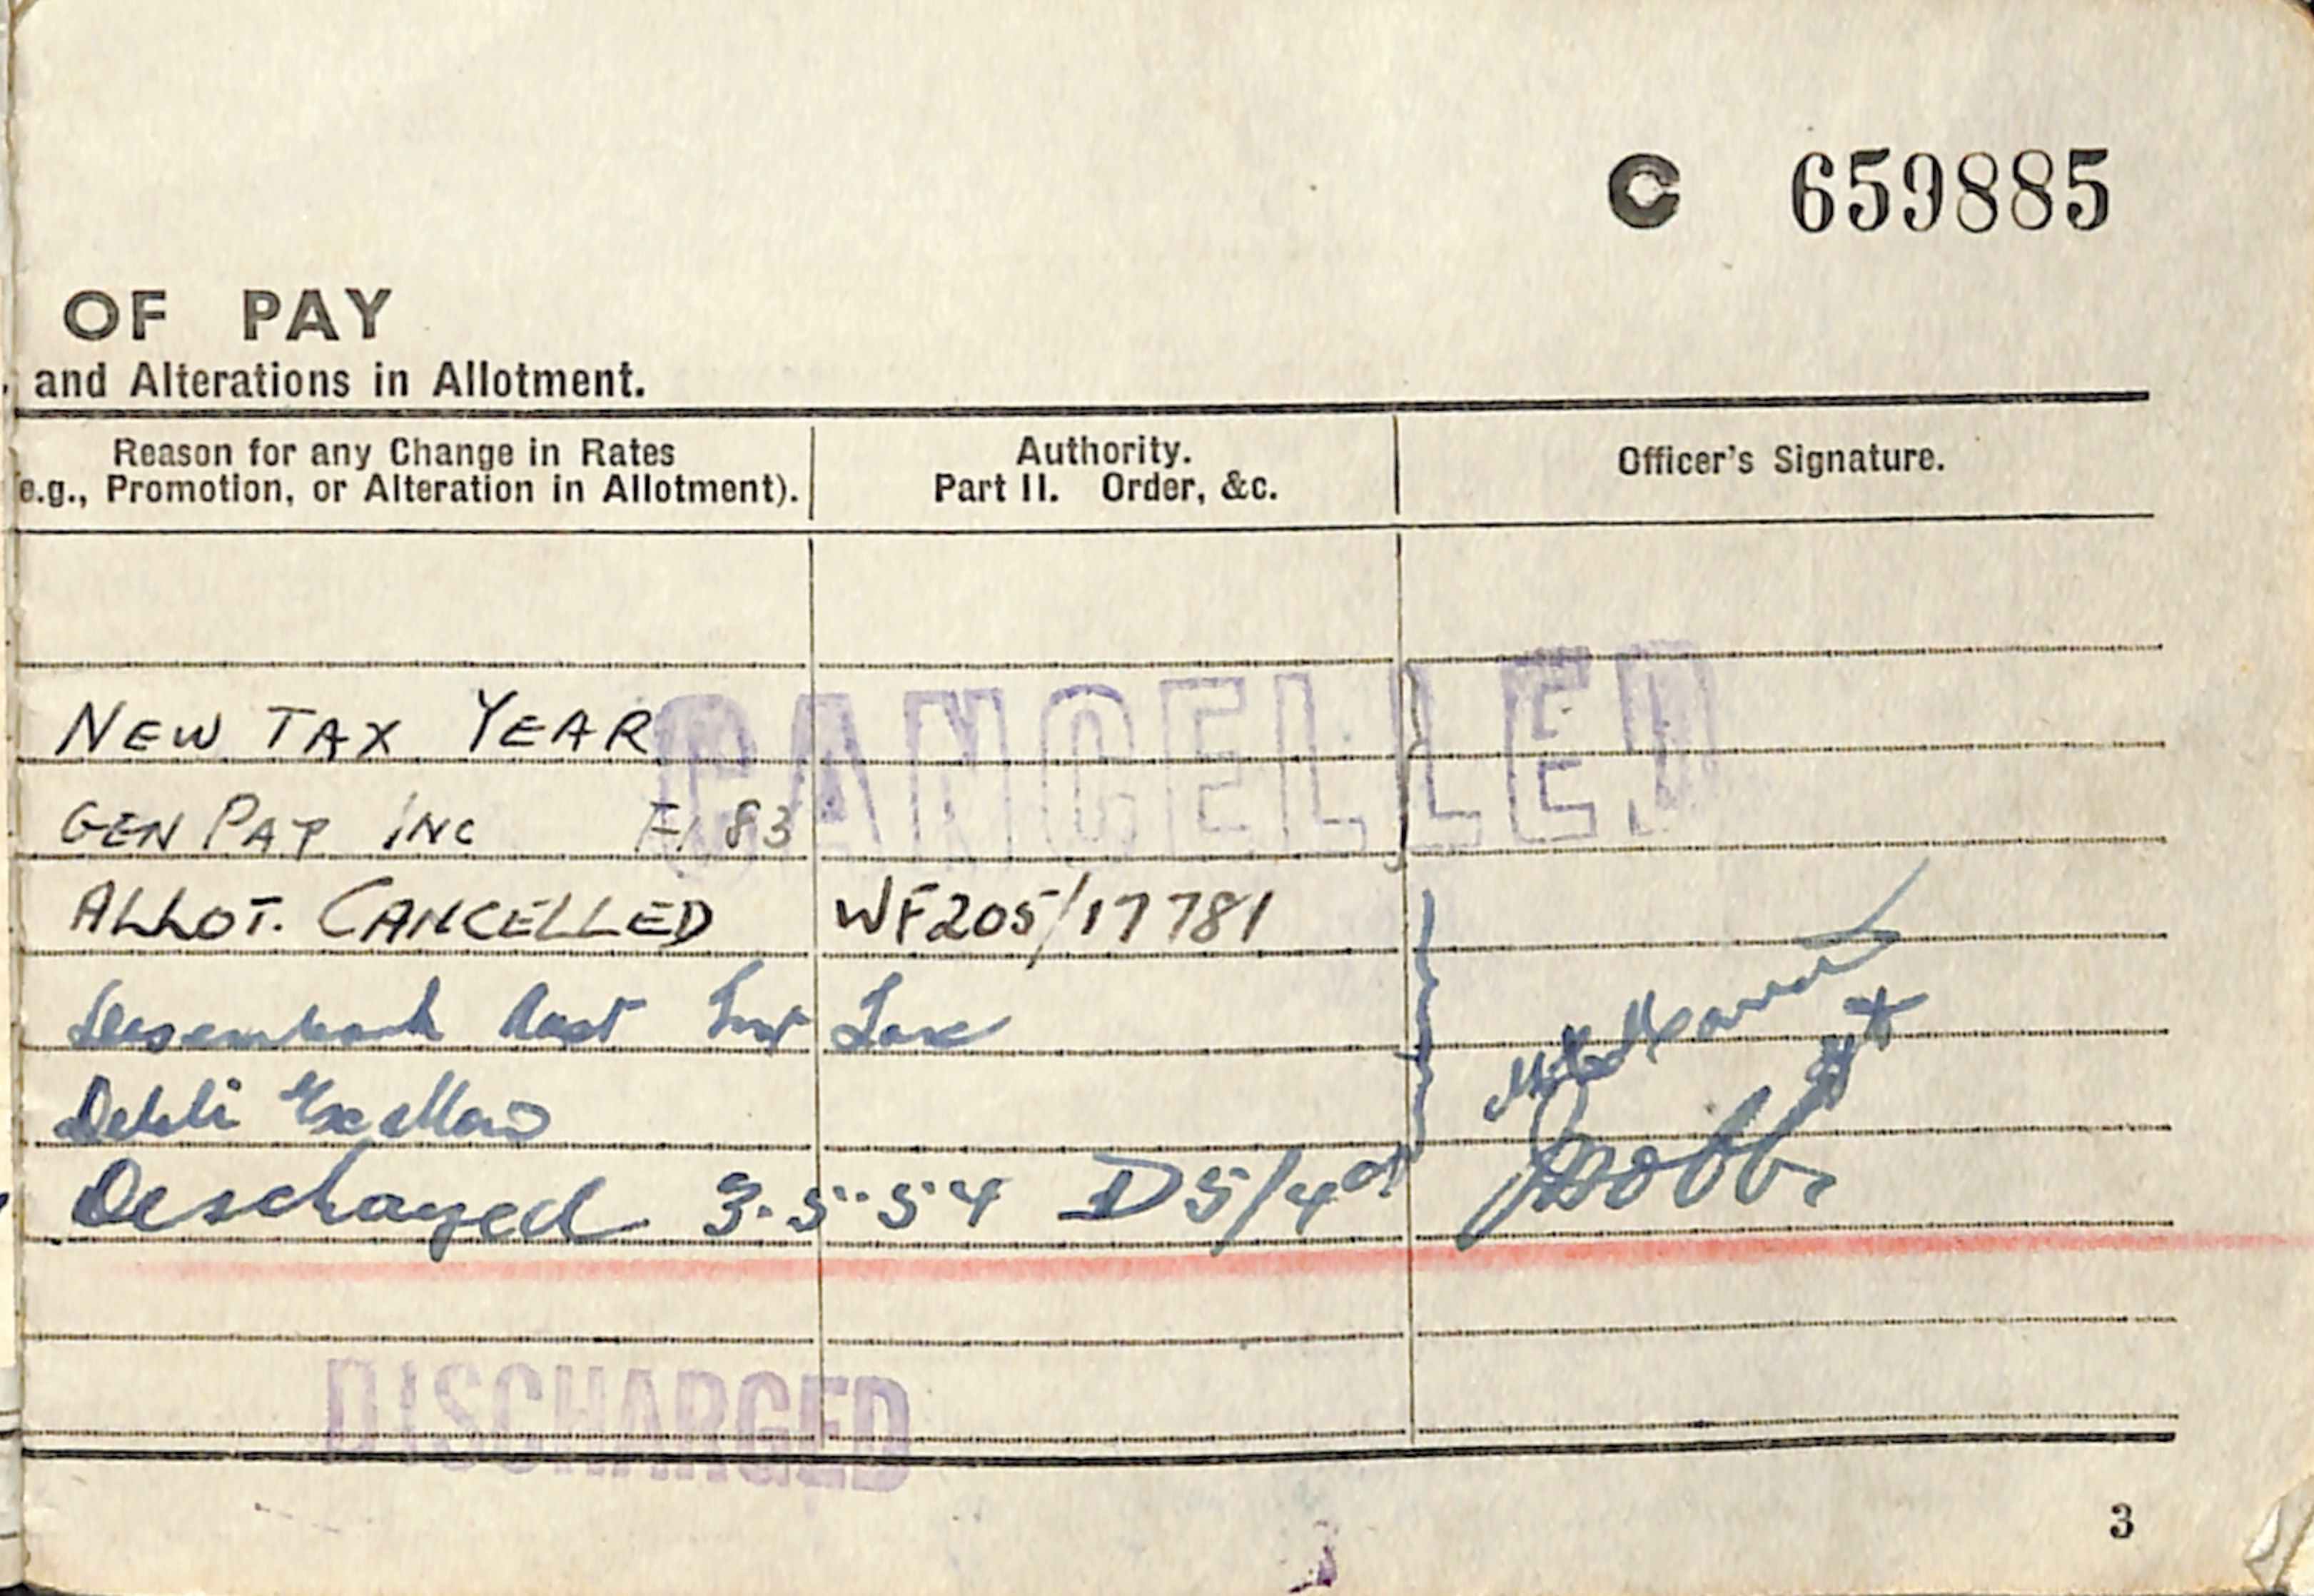 C 659885
OF PAY
and Alterations in Allotment.
Reason for any Change in Rates
e.g., Promotion, or Alteration in Allotment).
Authority.
Part II. Order, &c.
Officer's Signature.
CANCELLED
NEW TAX YEAR
GEN PAY INC 83
ALLOT. CANCELLED WF205/17781
Disembark
Debit
Descharged 3.5.54 D5/4
DISCHARGED
3